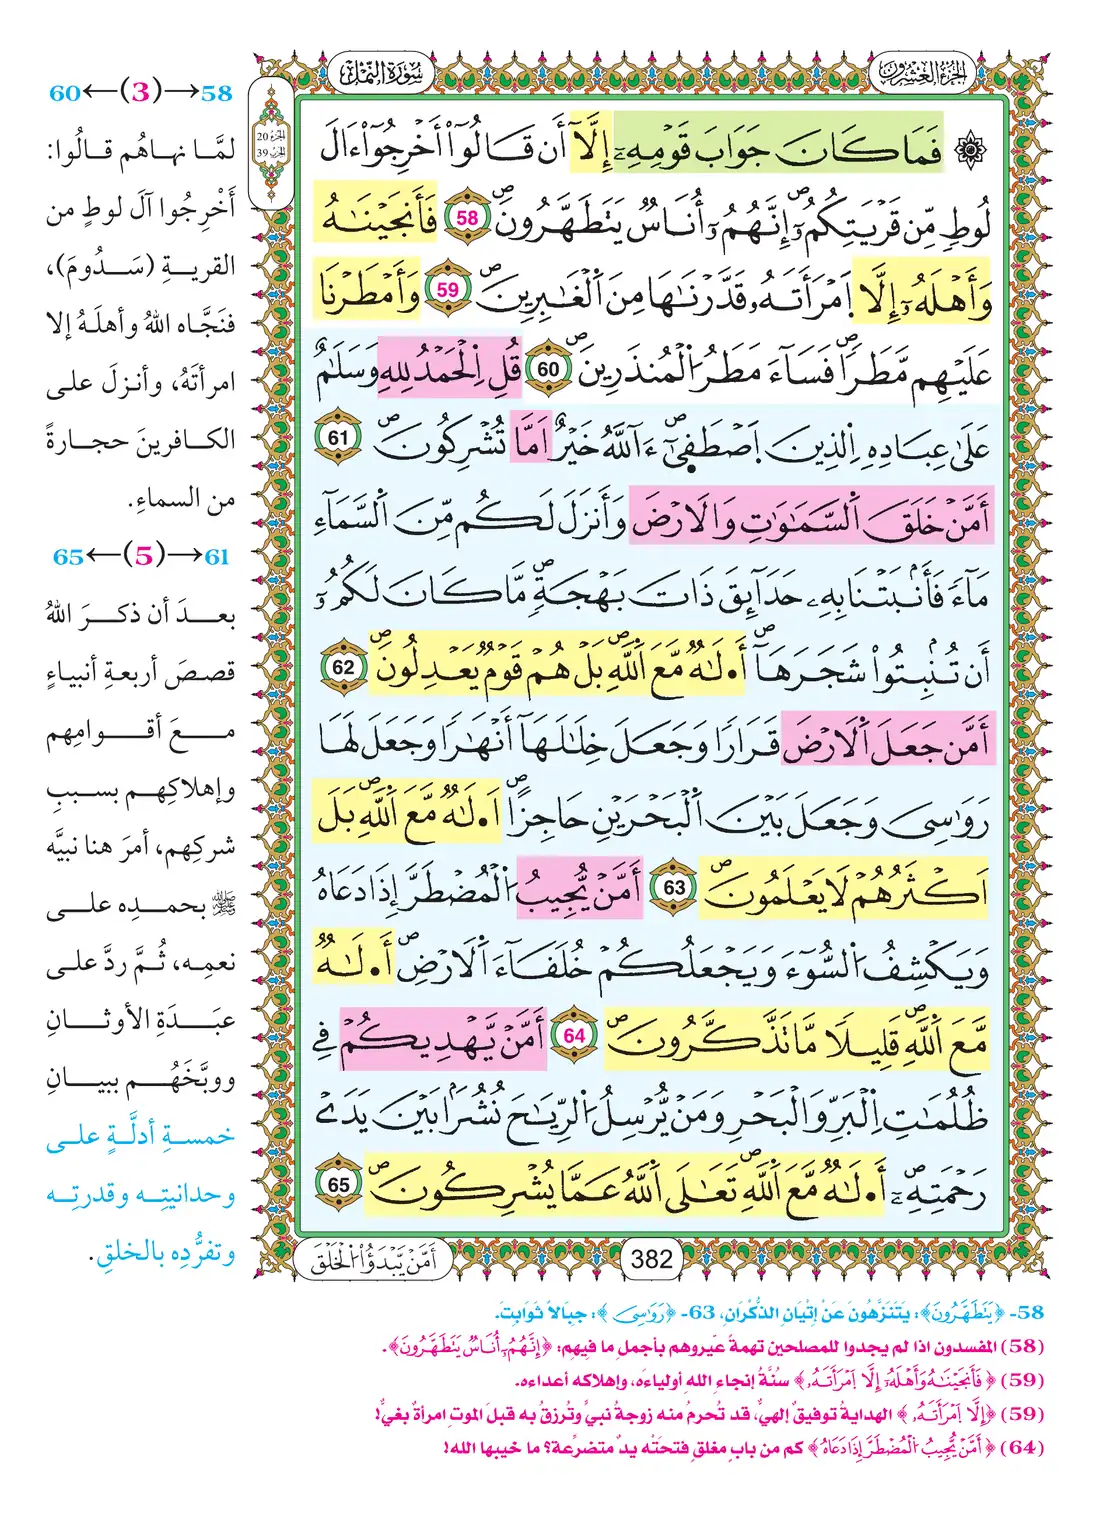 الجزء العشرون
سورة النمل
الجزء 20
الحزب 39
فَمَا كَانَ جَوَابَ قَوْمِهِۦٓ إِلَّآ أَن قَالُوٓاْ أَخْرِجُوٓاْ ءَالَ
لُوطٖ مِّن قَرْيَتِكُمُۥٓۖ إِنَّهُمُۥٓ أُنَاسٞ يَتَطَهَّرُونَۖ 58 فَأَنجَيْنَٰهُ
وَأَهْلَهُۥٓ إِلَّا اَمْرَأَتَهُۥ قَدَّرْنَٰهَا مِنَ اَلْغَٰبِرِينَۖ 59 وَأَمْطَرْنَا
عَلَيْهِم مَّطَراٗۖ فَسَآءَ مَطَرُ اُلْمُنذَرِينَۖ 60 قُلِ اِلْحَمْدُ لِلهِ وَسَلَٰمٌ
عَلَىٰ عِبَادِهِ اِلذِينَ اَصْطَف۪يٰٓۖ ءَآللَّهُ خَيْرٌ اَمَّا تُشْرِكُونَۖ 61
أَمَّنْ خَلَقَ اَلسَّمَٰوَٰتِ وَالَارْضَ وَأَنزَلَ لَكُم مِّنَ اَلسَّمَآءِ
مَآءٗ فَأَنۢبَتْنَا بِهِۦ حَدَآئِقَ ذَاتَ بَهْجَةٖۖ مَّا كَانَ لَكُمُۥٓ
أَن تُنۢبِتُواْ شَجَرَهَآۖ أَ۟لَٰهٞ مَّعَ اَللَّهِۖ بَلْ هُمْ قَوْمٞ يَعْدِلُونَۖ 62
أَمَّن جَعَلَ اَلَارْضَ قَرَاراٗ وَجَعَلَ خِلَٰلَهَآ أَنْهَٰراٗ وَجَعَلَ لَهَا
رَوَٰسِيَ وَجَعَلَ بَيْنَ اَلْبَحْرَيْنِ حَاجِزاًۖ اَ۟لَٰهٞ مَّعَ اَللَّهِۖ بَلَ
اَكْثَرُهُمْ لَا يَعْلَمُونَۖ 63 أَمَّنْ يُّجِيبُ اُلْمُضْطَرَّ إِذَا دَعَاهُ
وَيَكْشِفُ اُلسُّوٓءَ وَيَجْعَلُكُمْ خُلَفَآءَ اَلَارْضِۖ أَ۟لَٰهٞ
مَّعَ اَللَّهِۖ قَلِيلاٗ مَّا تَذَّكَّرُونَۖ 64 أَمَّنْ يَّهْدِيكُمْ فِي
ظُلُمَٰتِ اِلْبَرِّ وَالْبَحْرِ وَمَنْ يُّرْسِلُ اُلرِّيَٰحَ نُشُراَۢ بَيْنَ يَدَيْ
رَحْمَتِهِۦٓۖ أَ۟لَٰهٞ مَّعَ اَللَّهِۖ تَعَٰلَى اَللَّهُ عَمَّا يُشْرِكُونَۖ 65
382
أَمَّنْ يَّبْدَؤُاْ اُلْخَلْقَ
60←(3)→58
لمَّا نهاهُم قالُوا:
أَخْرِجُوا آلَ لوطٍ من
القريةِ (سَدُومَ)،
فنَجَّاه اللهُ وأهلَهُ إلا
امرأتَهُ، وأنزلَ على
الكافرينَ حجارةً
من السماءِ.
65←(5)→61
بعدَ أن ذكرَ اللهُ
قصصَ أربعةِ أنبياءٍ
معَ أقوامِهم
وإهلاكِهم بسببِ
شركِهم، أمرَ هنا نبيَّه
ﷺ بحمدِه على
نعمِه، ثُمَّ ردَّ على
عبَدَةِ الأوثانِ
ووبَّخَهُم ببيانِ
خمسةِ أدلَّةٍ على
وحدانيتِه وقدرتِه
وتفرُّدِه بالخلقِ.
58- ﴿يَتَطَهَّرُونَ﴾: يَتَنَزَّهُونَ عَنْ إِتْيَانِ الذُّكْرَانِ، 63- ﴿رَوَٰسِيَ﴾: جبَالاً ثَوَابِتَ.
(58) المفسدون اذا لم يجدوا للمصلحين تهمةً عيّروهم بأجملِ ما فيهم: ﴿إِنَّهُمُۥٓ أُنَاسٞ يَتَطَهَّرُونَ﴾.
(59) ﴿فَأَنجَيْنَٰهُ وَأَهْلَهُۥٓ إِلَّا اَمْرَأَتَهُۥ﴾ سُنَّةُ إنجاءِ اللهِ أولياءَه، وإهلاكه أعداءه.
(59) ﴿إِلَّا اَمْرَأَتَهُۥ﴾ الهدايةُ توفيقٌ إلهيٌّ، قد تُحرمُ منه زوجةُ نبيٍّ وتُرزقُ به قبلَ الموتِ امرأةٌ بغيٌّ!
(64) ﴿أَمَّنْ يُّجِيبُ اُلْمُضْطَرَّ إِذَا دَعَاهُ﴾ كم من بابٍ مغلقٍ فتحَتْه يدٌ متضرِّعة؟ ما خيبها الله!